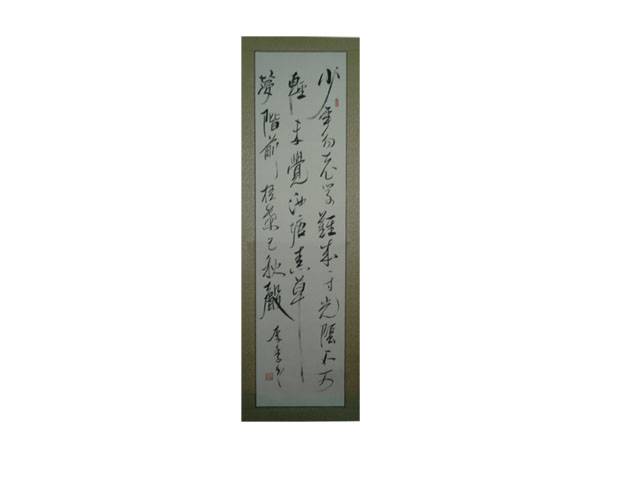 少年易老学難成一寸光陰不可
輕未覺池塘春草
夢階前梧葉已秋聲